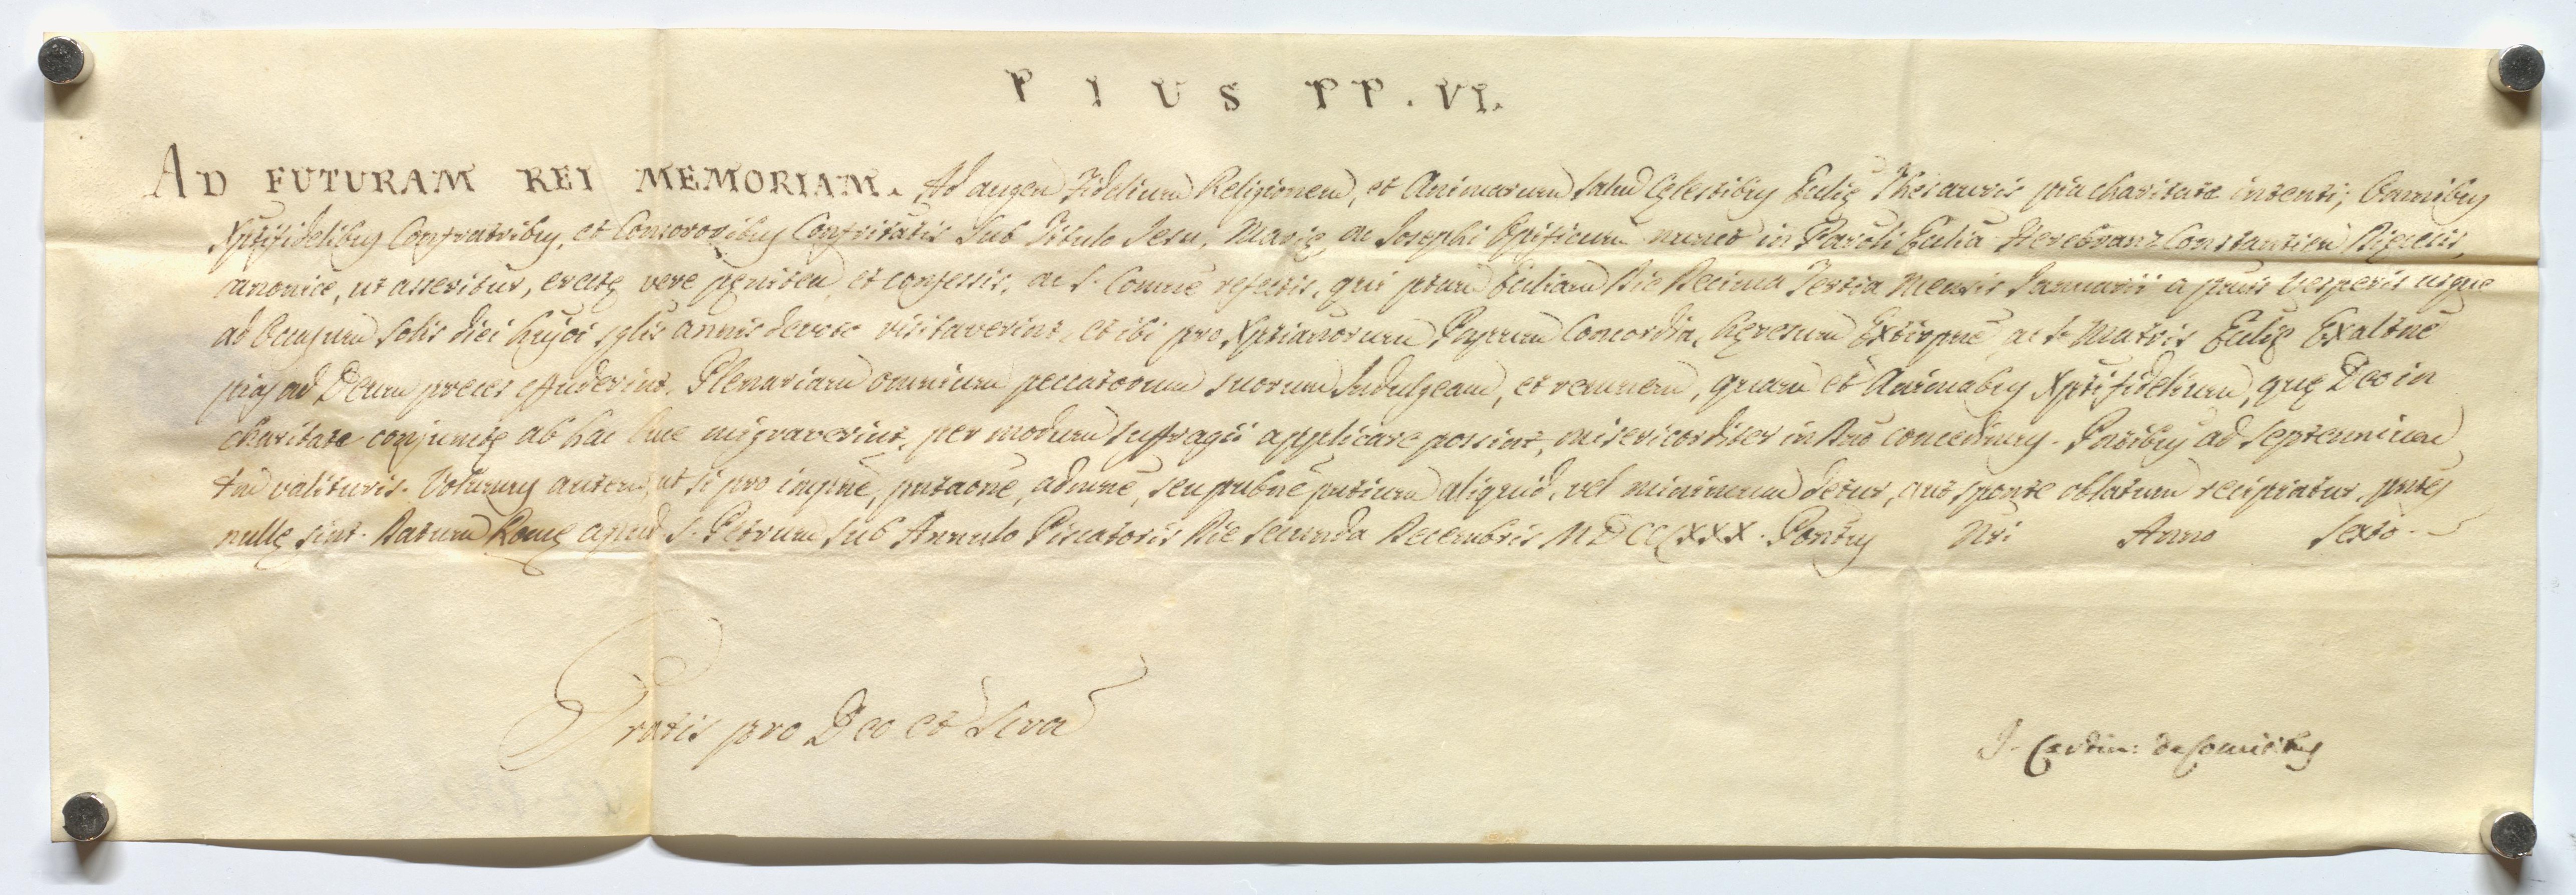 PIUS PP. VI.
AD FUTURAM REI MEMORIAM. Ad augen Fidelium Religionem, et Animarum salut Cęlestibus Ecclię Thesauris pia charitate intenti; Omnibus
Xptifidelibus Confratribus, et Consororibus Confritatis sub Titulo Jesu, Marię, ac Josephi Opificum nuncup in Paroli Ecclia Constantien Dięcesis,
canonice, ut asseritur, erectę vere pęniten, et confessis, ac S. Comune refectis, qui ptam Eccliam Die Decima Tertia Mensis Januarii a primis Vesperis usque
ad Occasum Solis diei hujoi sglis annis devote visitaverint, et ibi pro Xptianorum Ppum Concordia, hęresum Extirpne, ac S. Matris Ecclię Exaltne
pias ad Deum preces effuderint, Plenariam omnium peccatorum suorum Indulgeam, et remnem, quam et Animabus Xptifidelium, quę Deo in
charitate conjunctę ab hac luce migraverint, per modum suffragii applicare possint, misericorditer in Dno concedimus. Pntibus ad Septennium
tm valituris. Volumus autem, ut si pro impne, pntaone, admne, seu pubne pntium aliquid, vel minimum detur, aut sponte oblatum recipiatur, pntes
nullę sint. Datum Romę apud S. Petrum sub Annulo Piscatoris Die Secunda Decembris MDCCLXXX. Pontus Nri Anno Sexto.
Gratis pro Deo et Scra
I. Cardin: de Comitibus